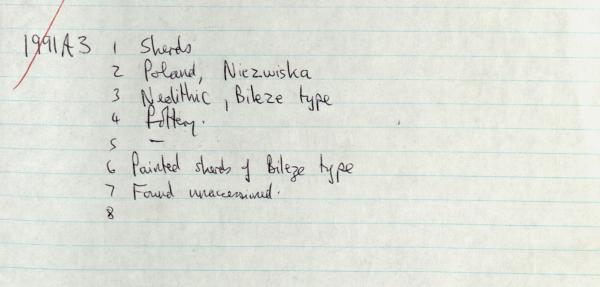 1991A3 1 Sherds
2 Poland, Niezwiska
3 Neolithic, Bileze type
4 Pottery.
5 —
6 Painted sherds of Bileze type
7 Found unaccessioned.
8